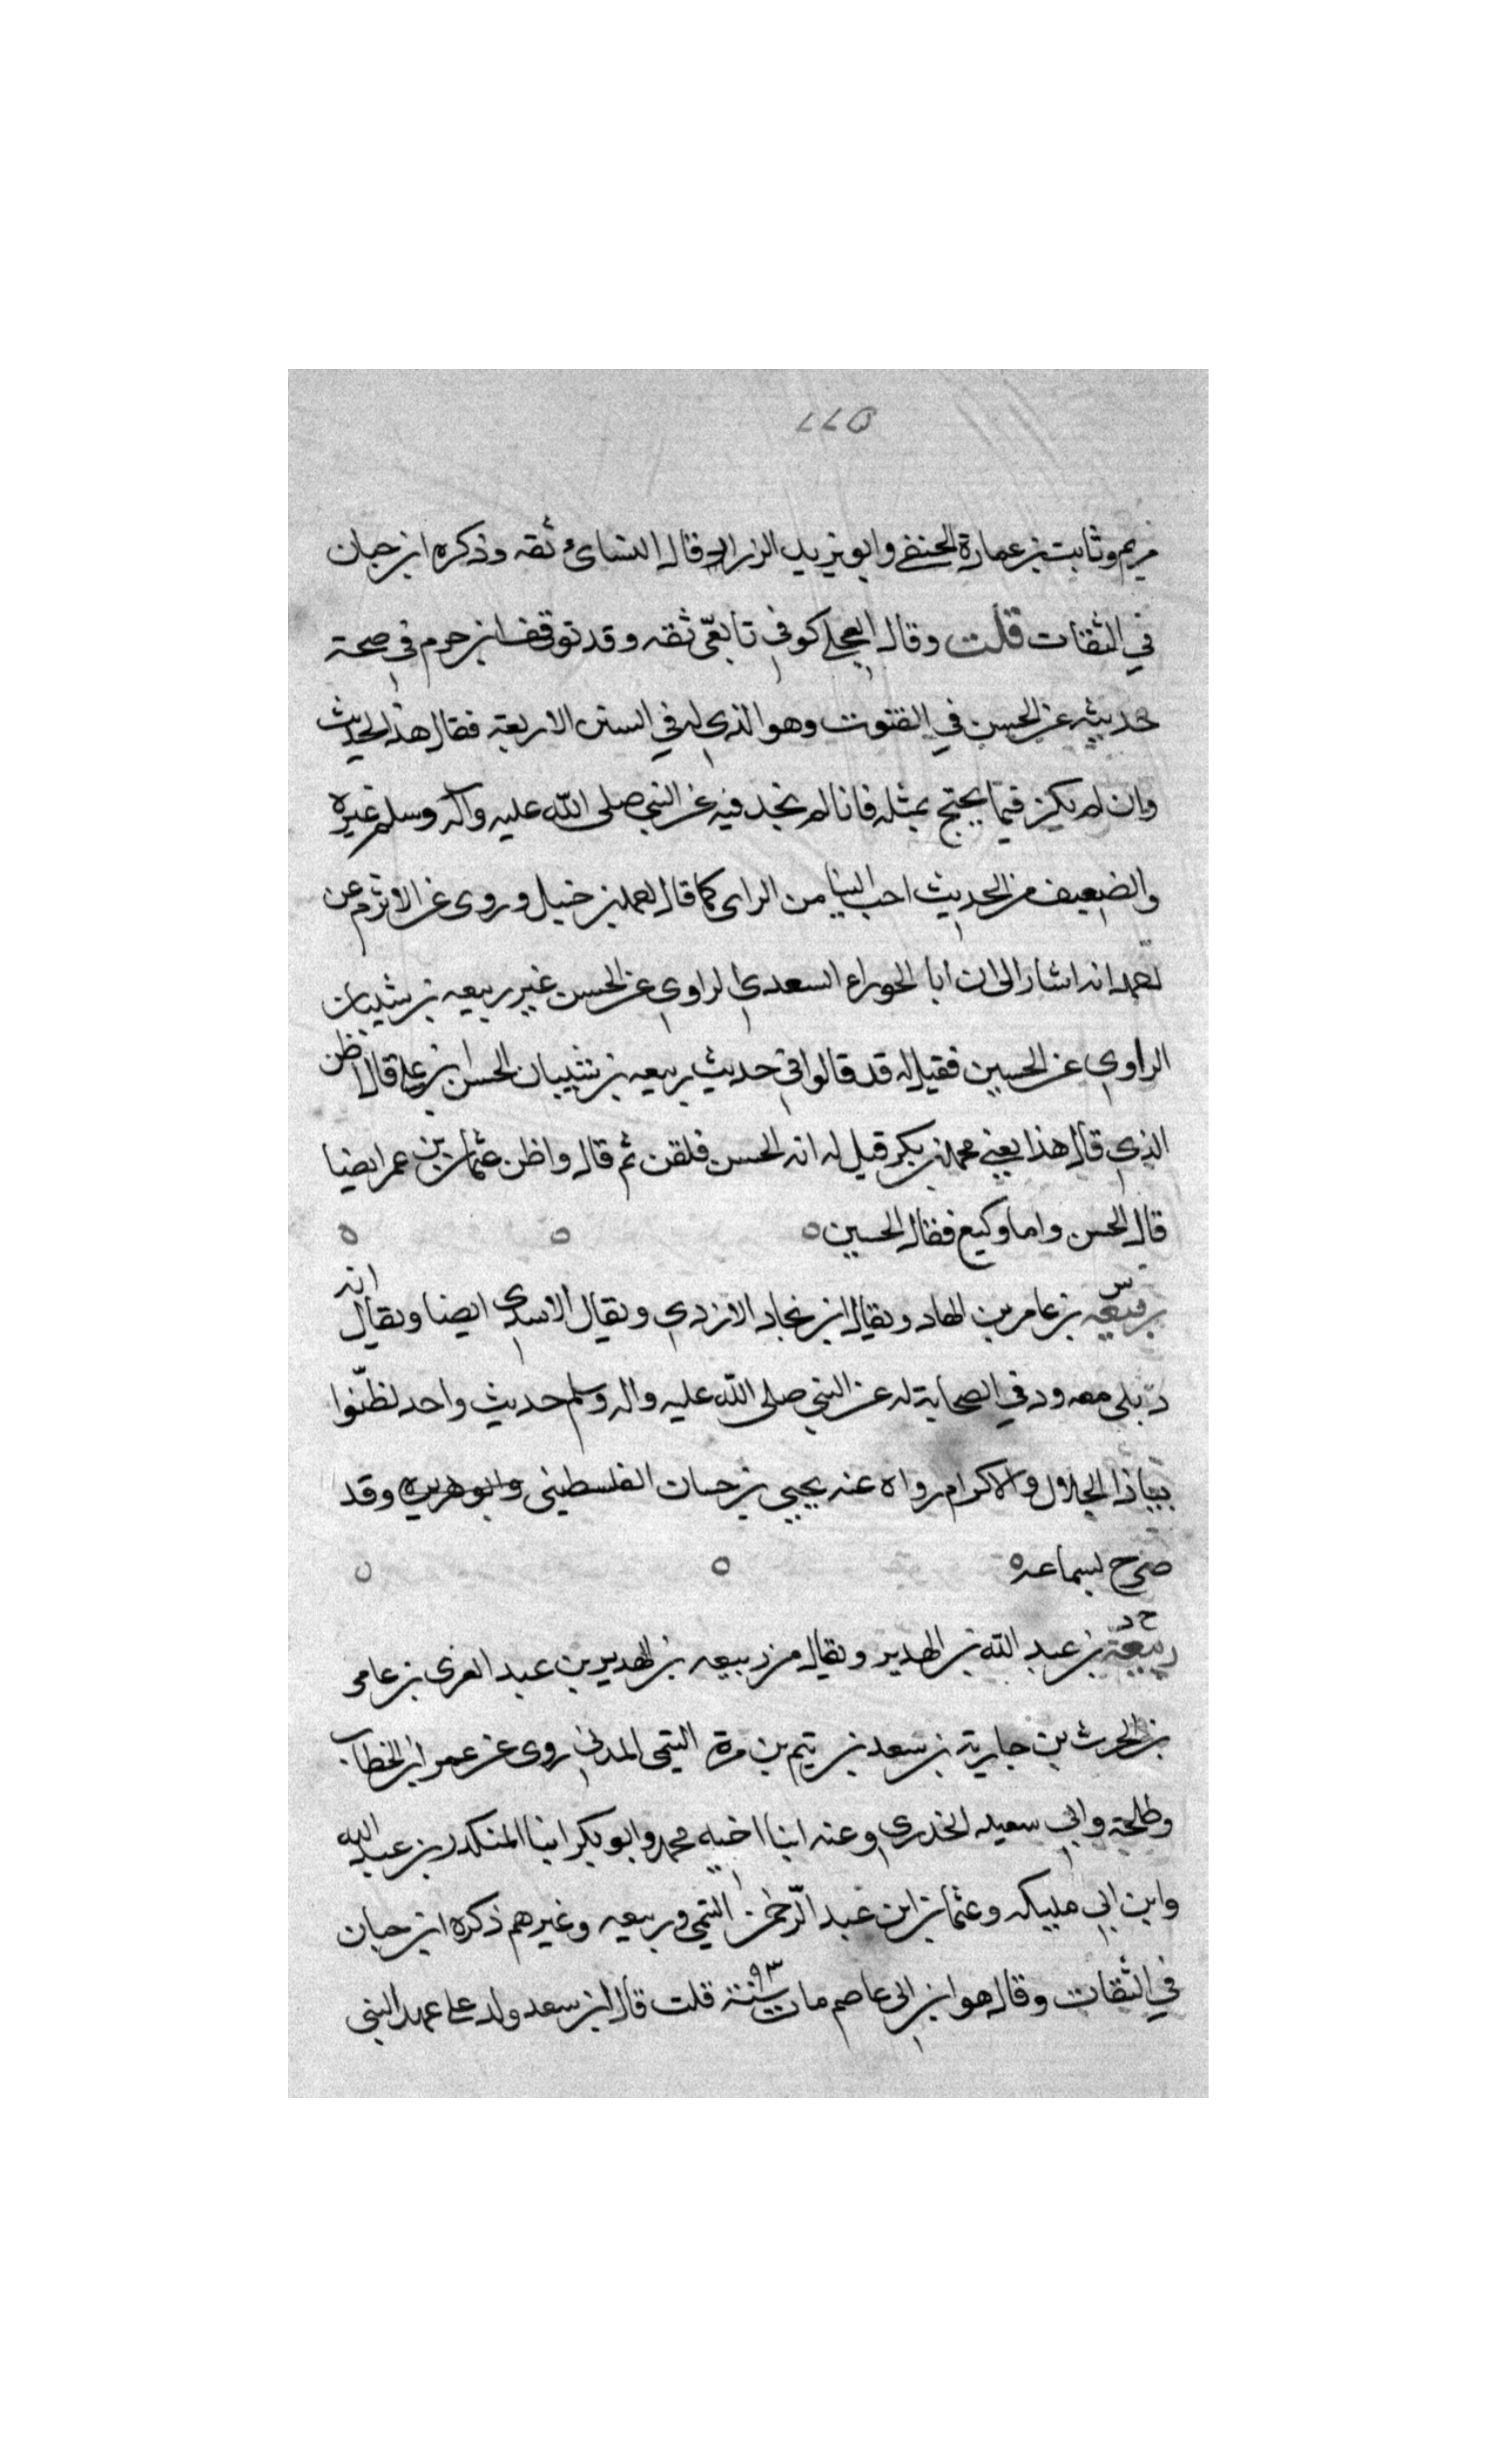 ٥٦٦
مريم وثابت بن عمارة الحنفي وابو يزيد الزراد قال النسائي ثقه وذكره ابن حبان
في الثقات قلت وقال العجلي كوفي تابعي ثقه وقد توقف ابن حزم في صحة
حديثه عن الحسن في القنوت وهو الذي له في السنن الاربعة فقال هذا الحديث
وان لم يكن فيما يحتج بمثله فانا لم نجد فيه عن النبي صلى الله عليه وآله وسلم غيره
والضعيف من الحديث احب الينا من الراى كما قال احمد بن حنبل وروى عن الاثرم عن
احمد انه اشار الى ان ابا الحوراء السعدي الراوي عن الحسن غير ربيعه بن شيبان
الراوي عن الحسين فقيل له قد قالوا في حديث ربيعه بن شيبان الحسن بن علي قال اظن
الذي قال هذا يعني محمد بن بكر قيل له انه الحسن فلقن ثم قال واظن عثمان بن عمر ايضا
قال الحسن واما وكيع فقال الحسين ه ه ه
س
ربيعه بن عامر بن الهاد ويقال ابن بجاد الازدي ويقال الاسدي ايضا ويقال انه
دئلي معدود في الصحابة له عن النبي صلى الله عليه واله وسلم حديث واحد لظّوا
بياذا الجلال والاكرام رواه عنه يحيى بن حسان الفلسطيني وابو هريره وقد
صرح بسماعه ه ه
خ د
ربيعة بن عبد الله بن الهدير ويقال من ربيعه بن الهدير بن عبد العزى بن عامر
بن الحرث بن حارثة بن سعد بن تيم بن مرة التيمى المدني روى عن عمر ابن الخطاب
وطلحة وابي سعيد الخدري وعنه ابنا اخيه محمد وابو بكر ابنا المنكدر بن عبد الله
وابن ابي مليكه وعثمان ابن عبد الرّحمن التيمي وربيعه وغيرهم ذكره ابن حبان
في الثقات وقال هو ابن ابى عاصم مات سنة ٩٣ قلت قال ابن سعد ولد على عهد النبى